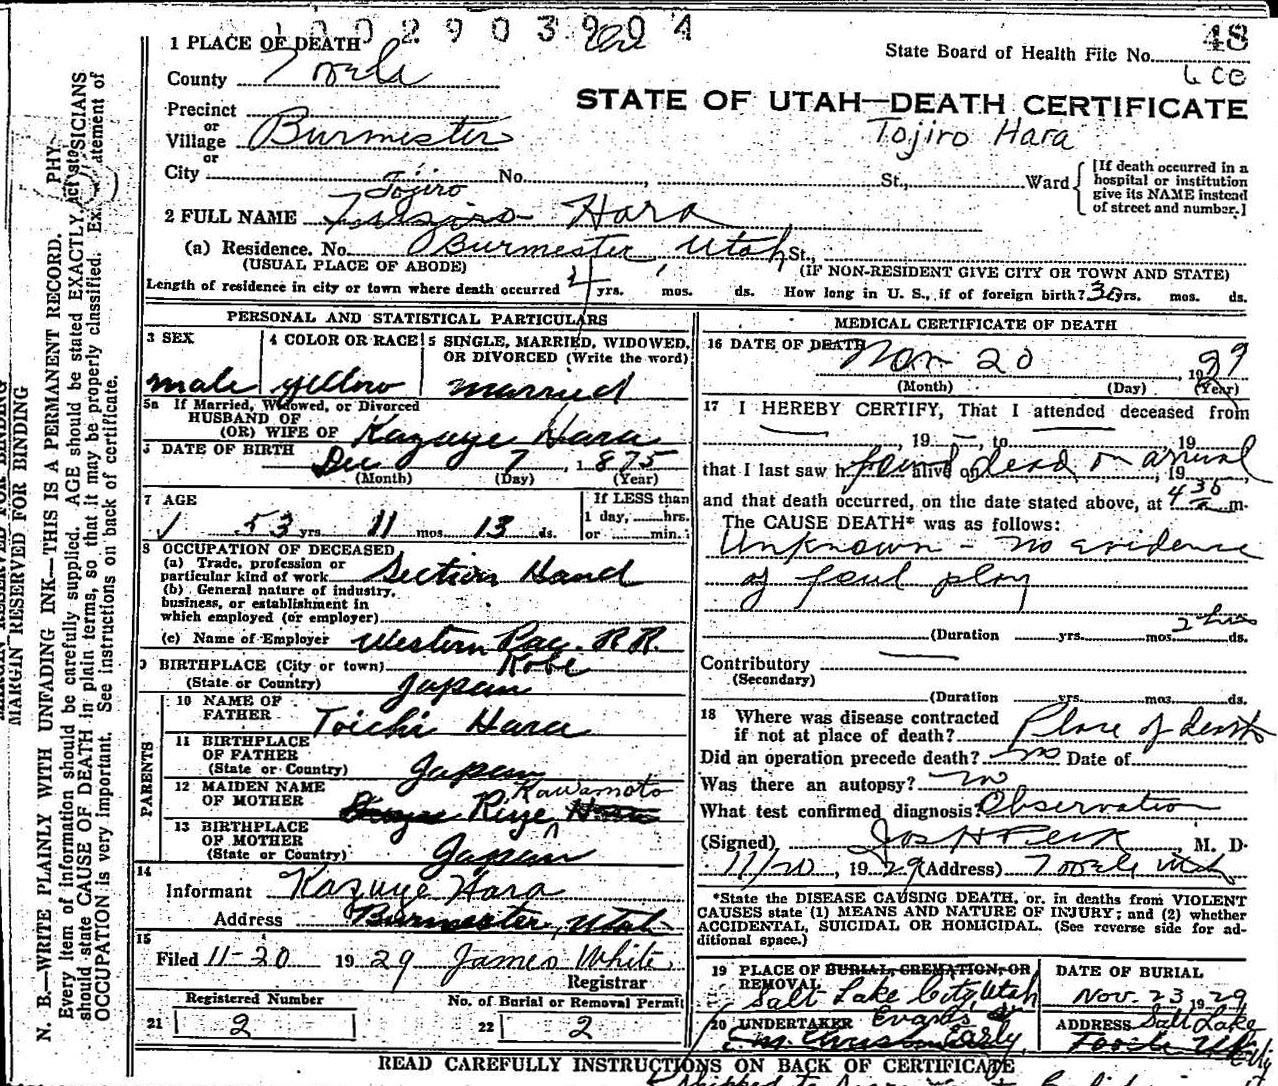 1002903904
1 PLACE OF DEATH
State Board of Health File No. 48
County Tooele
STATE OF UTAH—DEATH CERTIFICATE
Precinct
or
Village Burmester
Tojiro Hara
or
City No. , St., Ward
[If death occurred in a
hospital or institution
give its NAME instead
of street and number.]
Tojiro
2 FULL NAME Hara
(a) Residence. No. Burmester, Utah St.,
(USUAL PLACE OF ABODE) (IF NON-RESIDENT GIVE CITY OR TOWN AND STATE)
Length of residence in city or town where death occurred yrs. mos. ds. How long in U. S., if of foreign birth? 30 yrs. mos. ds.
PERSONAL AND STATISTICAL PARTICULARS
3 SEX
male
4 COLOR OR RACE
yellow
5 SINGLE, MARRIED, WIDOWED,
OR DIVORCED (Write the word)
married
5a If Married, Widowed, or Divorced
HUSBAND OF
(OR) WIFE OF Kazuye Hara
DATE OF BIRTH
Dec 7, 1875
(Month) (Day) (Year)
7 AGE
53 yrs 11 mos 13 ds.
If LESS than
1 day, hrs.
or min.
8 OCCUPATION OF DECEASED
(a) Trade, profession or
particular kind of work Section Hand
(b) General nature of industry,
business, or establishment in
which employed (or employer)
(c) Name of Employer Western Pac. R R.
9 BIRTHPLACE (City or town) Kobe
(State or Country) Japan
PARENTS
10 NAME OF
FATHER Toichi Hara
11 BIRTHPLACE
OF FATHER
(State or Country) Japan
12 MAIDEN NAME Kawamoto
OF MOTHER Riye
13 BIRTHPLACE
OF MOTHER
(State or Country) Japan
14
Informant Kazuye Hara
Address Burmester, Utah
15
Filed 11-20 1929 James White
Registrar
Registered Number
21 2
No. of Burial or Removal Permit
22 2
MEDICAL CERTIFICATE OF DEATH
16 DATE OF DEATH
Nov 20, 1929
(Month) (Day) (Year)
17 I HEREBY CERTIFY, That I attended deceased from
, 19 , to 19
that I last saw h alive on found dead on arrival, 19
and that death occurred, on the date stated above, at 4 35 m.
The CAUSE DEATH* was as follows:
Unknown - no evidence
of foul play
(Duration yrs. mos. 2 hrs ds.
Contributory
(Secondary)
(Duration yrs. mos. ds.
18 Where was disease contracted
if not at place of death? Place of death
Did an operation precede death? no Date of
Was there an autopsy? no
What test confirmed diagnosis? Observation
(Signed) Jos H Peck, M. D.
11/20, 1929 (Address) Tooele Utah
*State the DISEASE CAUSING DEATH, or, in deaths from VIOLENT
CAUSES state (1) MEANS AND NATURE OF INJURY; and (2) whether
ACCIDENTAL, SUICIDAL OR HOMICIDAL. (See reverse side for ad-
ditional space.)
19 PLACE OF BURIAL, CREMATION, OR
REMOVAL
Salt Lake City, Utah
DATE OF BURIAL
Nov 23 1929
20 UNDERTAKER Evans &
Early,
ADDRESS Salt Lake
City
READ CAREFULLY INSTRUCTIONS ON BACK OF CERTIFICATE
MARGIN RESERVED FOR BINDING
MARGIN RESERVED FOR BINDING
N. B.—WRITE PLAINLY WITH UNFADING INK—THIS IS A PERMANENT RECORD. PHYSICIANS
Every item of information should be carefully supplied. AGE should be stated EXACTLY.
should state CAUSE OF DEATH in plain terms, so that it may be properly classified. Exact statement of
OCCUPATION is very important. See instructions on back of certificate.